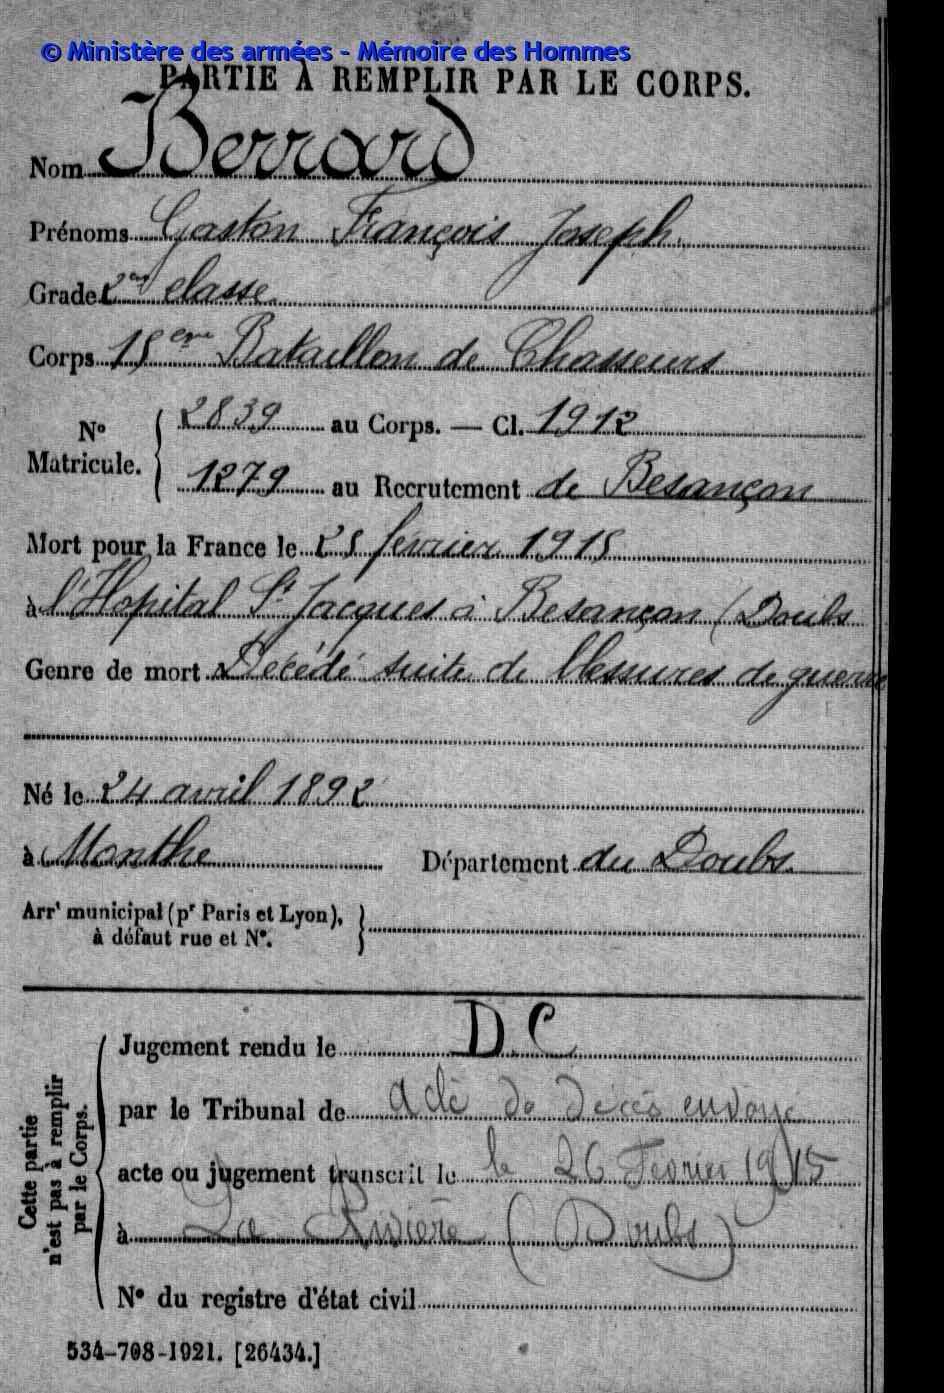 © Ministère des armées - Mémoire des Hommes
PARTIE À REMPLIR PAR LE CORPS.
Nom Berrard
Prénoms Gaston François Joseph.
Grade 2me classe
Corps 15eme Bataillon de Chasseurs
N° Matricule. { 2839 au Corps. — Cl. 1912
1279 au Recrutement de Besançon
Mort pour la France le 25 février 1915
à l'Hopital St Jacques à Besançon (Doubs
Genre de mort Décédé suite de blessures de guerre
Né le 24 avril 1892
à Monthe Département du Doubs.
Arrt municipal (pr Paris et Lyon), à défaut rue et N°. }
Cette partie n'est pas à remplir par le Corps.
Jugement rendu le D.C
par le Tribunal de acte de décès envoyé
acte ou jugement transcrit le le 26 Février 1915
à La Rivière (Doubs)
N° du registre d'état civil
534-708-1921. [26434.]